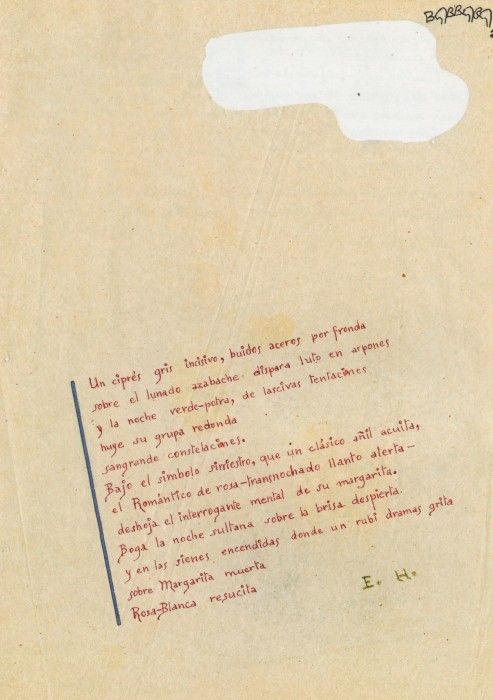 Un ciprés gris incisivo, buidos aceros por fronda
sobre el lunado azabache dispara luto en arpones
y la noche verde-potra, de lascivas tentaciones
huye su grupa redonda
sangrando constelaciones.
Bajo el símbolo siniestro, que un clásico añil acuita,
el Romántico de rosa-transnochado llanto alerta-
deshoja el interrogante mental de su margarita.
Boga la noche sultana sobre la brisa despierta
y en las sienes encendidas donde un rubí dramas grita
sobre Margarita muerta
Rosa-Blanca resucita
E. H.